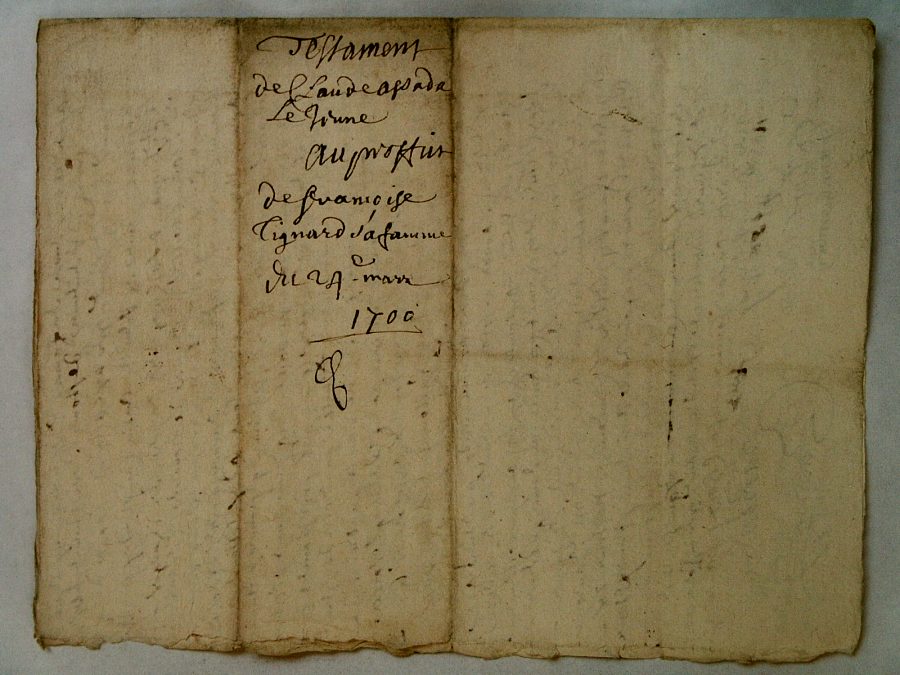 Testament
de Claude apada
Le Jeune
au proffit
de francoise
Tignard sa famme
du 24e mars
1700